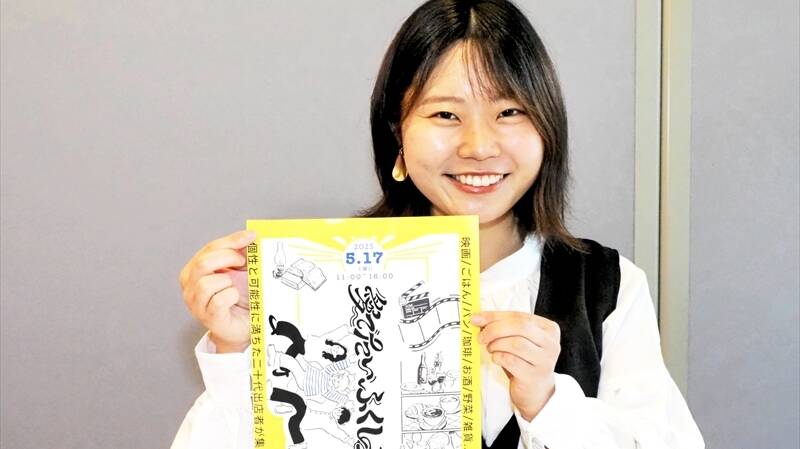 2025
5.17
土曜日
11:00~16:00
映画/ごはん/パン/珈琲/お酒/野菜/雑貨
愛でたいふくし
個性と可能性に満ちた二十代出店者が集